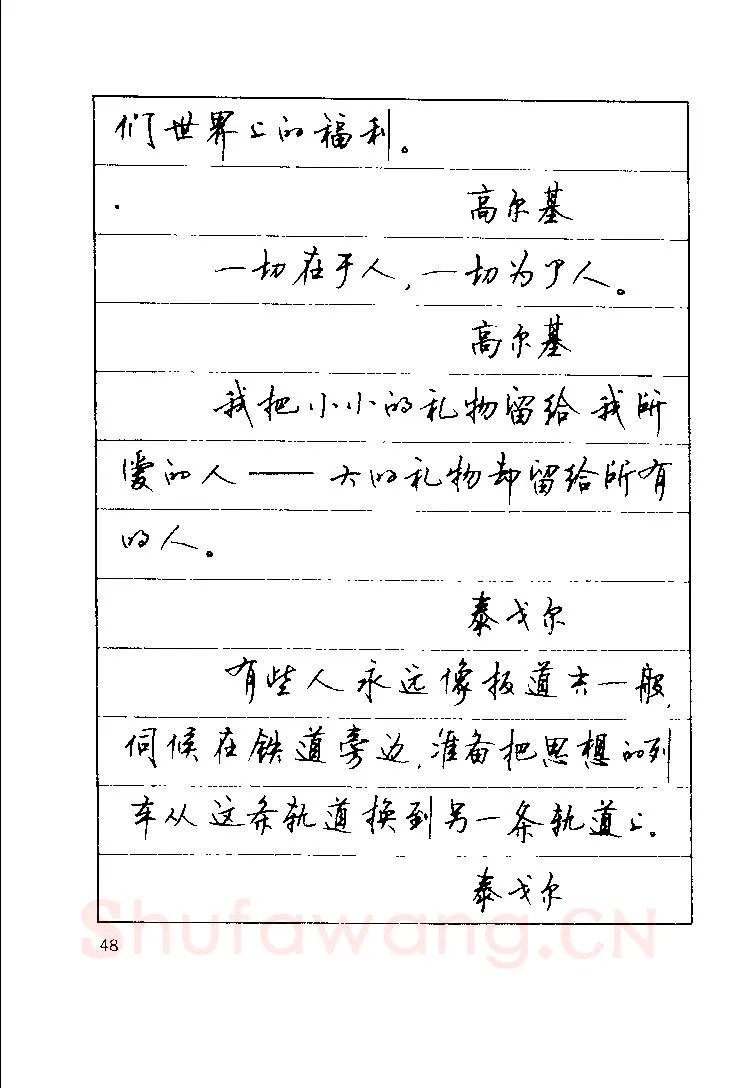 们世界上的福利。
高尔基
一切在于人,一切为了人。
高尔基
我把小小的礼物留给我所
爱的人——大的礼物却留给所有
的人。
泰戈尔
有些人永远像扳道夫一般,
伺候在铁道旁边,准备把思想的列
车从这条轨道换到另一条轨道上。
泰戈尔
Shufawang.CN
48